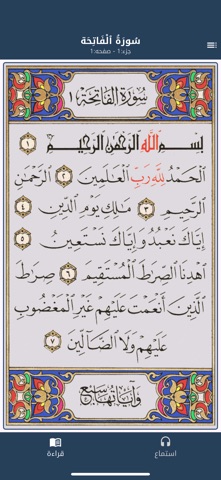 سُورَةُ ٱلْفَاتِحَة
جزء:1 - صفحة:1
سُورَةُ الفَاتِحَةِ ١
بِسْمِ اللَّهِ الرَّحْمَٰنِ الرَّحِيمِ ١
الْحَمْدُ لِلَّهِ رَبِّ الْعَٰلَمِينَ ٢ الرَّحْمَٰنِ
الرَّحِيمِ ٣ مَٰلِكِ يَوْمِ الدِّينِ ٤
إِيَّاكَ نَعْبُدُ وَإِيَّاكَ نَسْتَعِينُ ٥
اهْدِنَا الصِّرَٰطَ الْمُسْتَقِيمَ ٦ صِرَٰطَ
الَّذِينَ أَنْعَمْتَ عَلَيْهِمْ غَيْرِ الْمَغْضُوبِ
عَلَيْهِمْ وَلَا الضَّالِّينَ ٧
وَآيَاتُهَا سَبْعٌ
استماع
قراءة